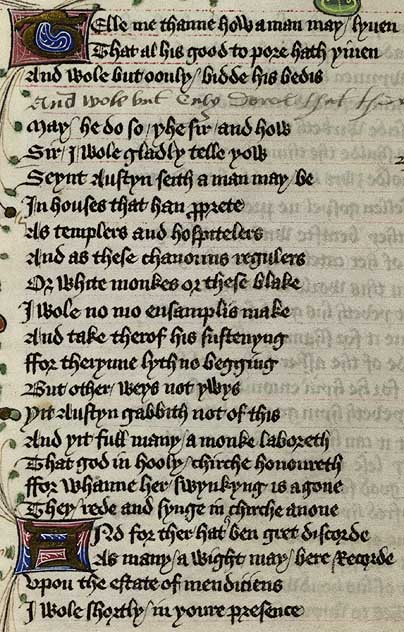 Telle me thanne how a man may lyuen
That al his good to pore hath yiuen
And wole but oonly bidde his bedis
And wole but Only
May he do so yhe sir and how
Sir I wole gladly telle yow
Seynt Austyn seith a man may be
In houses that han pprete
As templers and hospitelers
And as these chanouns regulers
Or white monkes or these blake
I wole no mo ensamplis make
And take therof his sustenyng
ffor therynne lyth no begging
But other weys not ywys
Yit Austyn gabbith not of this
And yit full many a monke laboreth
That god in hooly chirche honoureth
ffor whanne her swynkyng is agone
They rede and synge in chirche anone
And for ther hat ben gret discorde
As many a wight may bere Recorde
vpon the estate of mendiciens
I wole shortly in youre presence